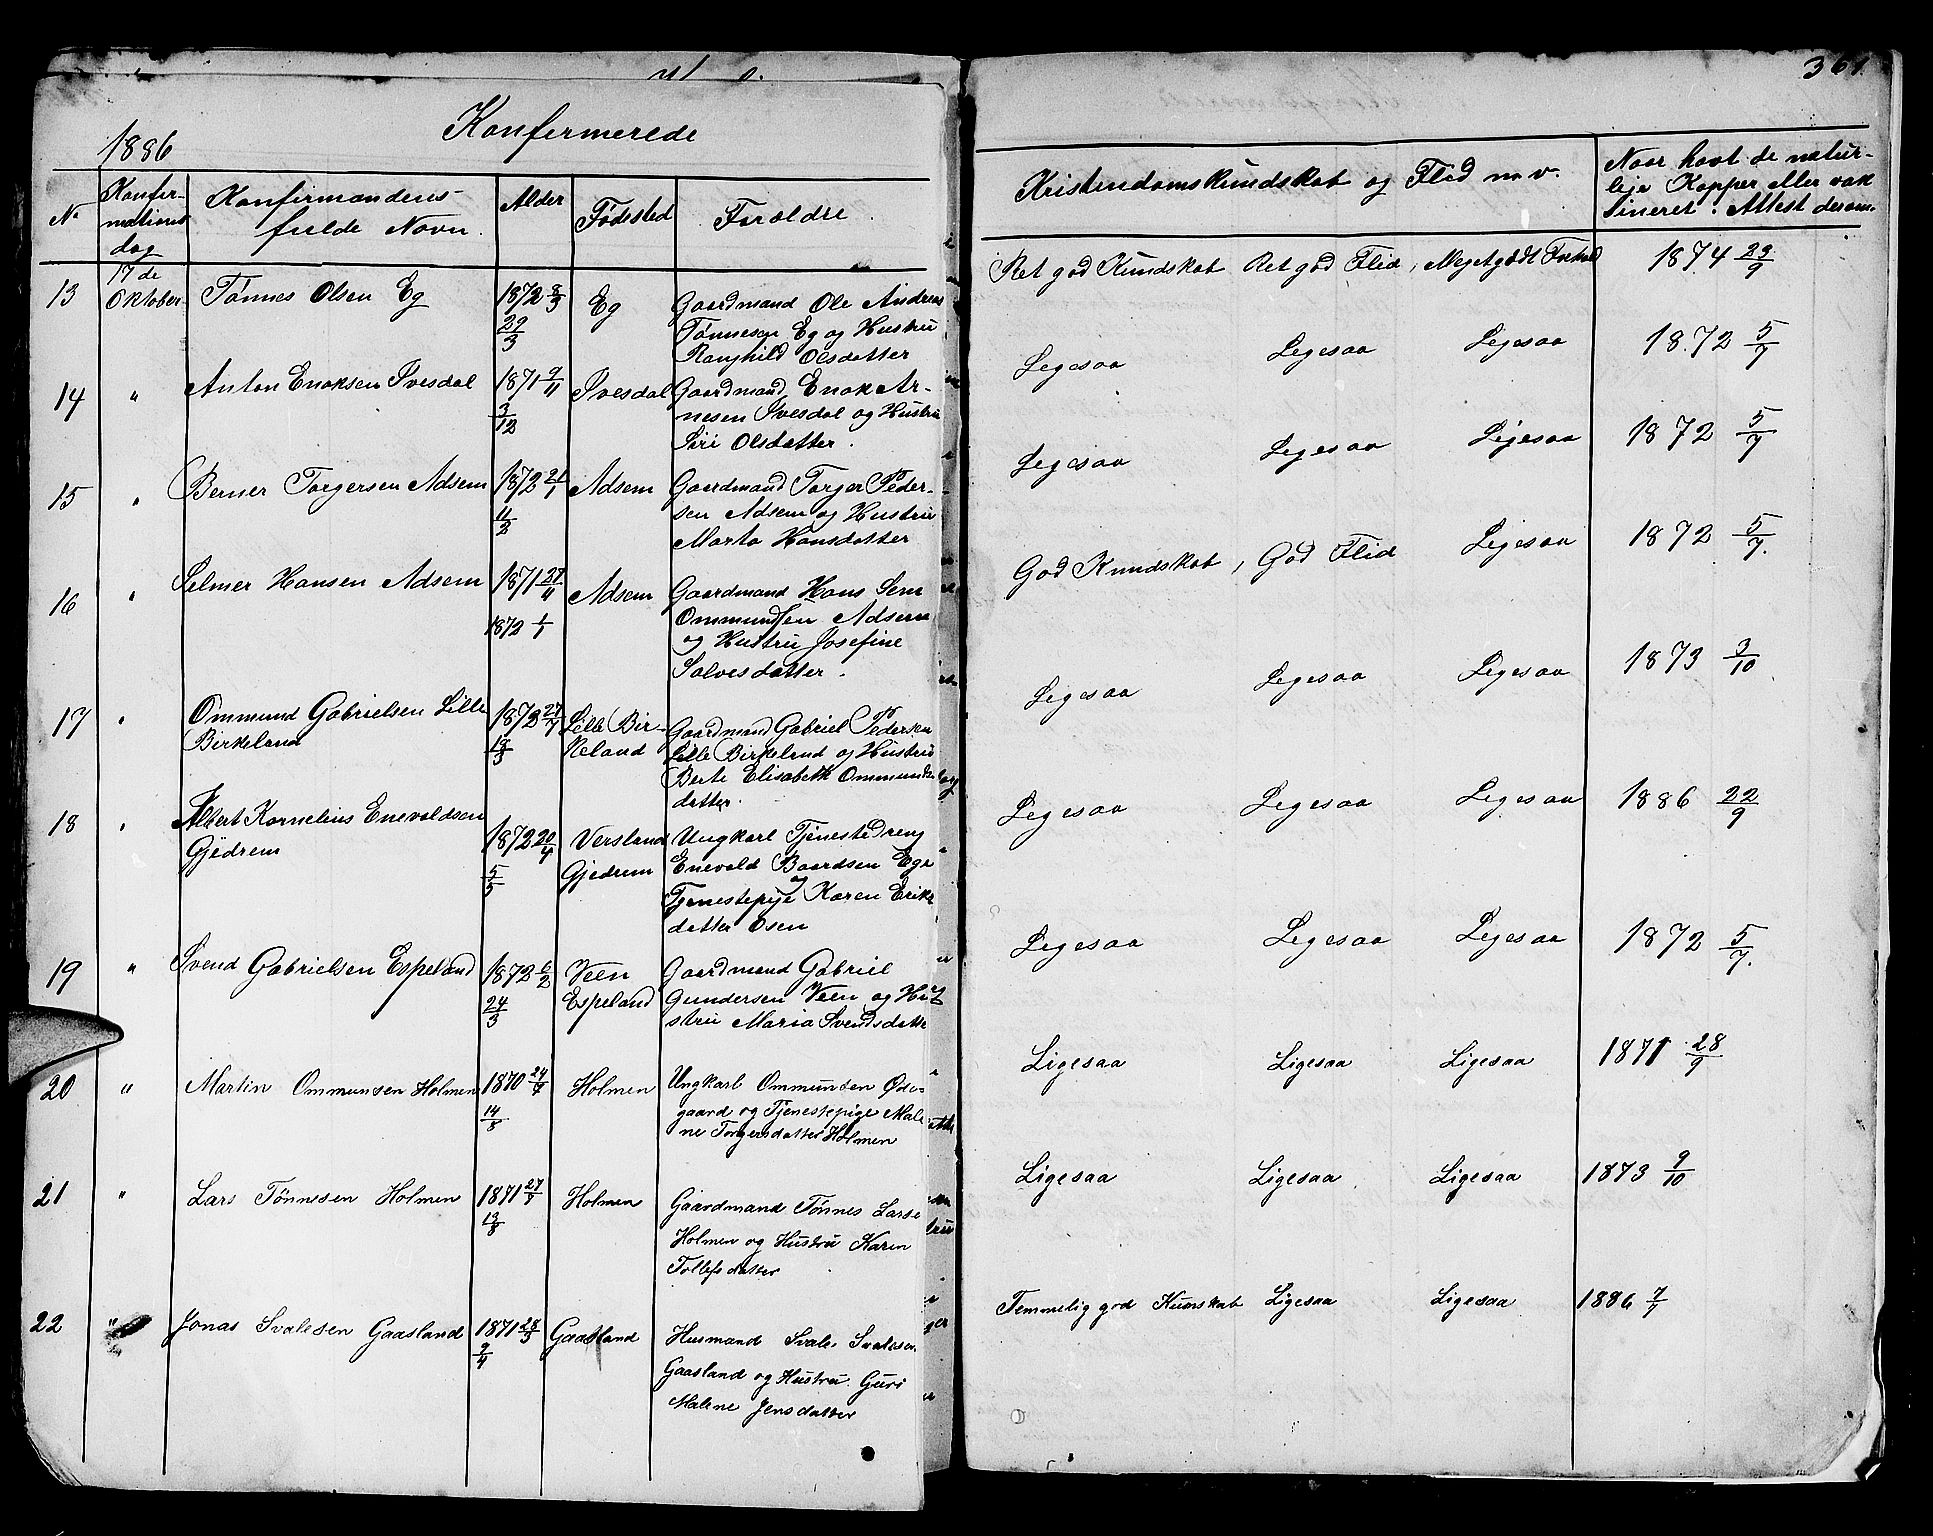 361.
1886
Konfermerede
Nr
Konfer-
mations
dag
Konfirmandens
fulde Navn.
Alder
Fødested
Forældre.
Kristendomskundskab og Flid m.v.
Naar havt de natur-
lige Kopper eller vak
sineret. Attest derom.
13
17de
Oktober
Tønnes Olsen Eg
1872 8/3
29/3
Eg
Gaardmand Ole Andreas
Tønnesen Eg og Hustru
Ranghild Olsdatter
Ret god Kundskab, Ret god Flid, Meget godt Forhold
1874 23/9
14
"
Anton Enoksen Ivesdal
1871 9/11
3/12
Ivesdal
Gaardmand Enok Ar-
nesen Ivesdal og Hustru
Siri Olsdatter.
Legesaa Legesaa Legesaa
1872 5/7
15
"
Berner Torgersen Adsem
1872 21/1
11/2
Adsem
Gaardmand Torger Peder-
sen Adsem og Hustru
Marta Hansdatter
Legesaa Legesaa Legesaa
1872 5/7
16
"
Selmer Hansen Adsem
1871 27/11
1872 1/1
Adsem
Gaardmand Hans Sem
Ommundsen Adsem
og Hustru Josefine
Salvesdatter.
God Kundskab, God Flid Legesaa
1872 5/7.
17
"
Ommund Gabrielsen Lille
Birkeland
1872 27/7
Lille Bir-
keland
Gaardmand Gabriel Pedersen
Lille Birkeland og Hustru
Berte Elisabeth Ommunds
datter.
Legesaa Legesaa Legesaa
1873 3/10
18
"
Albert Kornelius Enevoldsen
Gjedrem
1872 20/4
5/5
Versland
Gjedrem
Ungkarl Tjenestedreng
Enevold Baardsen Ege
og
Tjenestepige Karen Eriks
datter Osen
Legesaa Legesaa Legesaa
1886 22/9
19
"
Svend Gabrielsen Espeland
1872 6/2
24/3
Veen
Espeland
Gaardmand Gabriel
Gundersen Veen og Hu
stru Maria Svendsdatte
Legesaa Legesaa Legesaa
1872 5/7.
20
"
Martin Ommunsen Holmen
1870 24/7
14/8
Holmen
Ungkarl Ommunsen Øde-
gaard og Tjenestepige Male
ne Torgersdatter Holmen
Ligesaa Ligesaa Ligesaa
1871 28/9
21
"
Lars Tønnesen Holmen
1871 27/7
13/8
Holmen
Gaardmand Tønnes Larse
Holmen og Hustru Karen
Tollefsdatter
Ligesaa Ligesaa Ligesaa
1873 9/10
22
"
Jonas Svalesen Gaasland
1871 28/3
9/4
Gaasland
Husmand Svale Svalesen
Gaasland og Hustru Guri
Malene Jensdatter
Temmelig god Kunskab Ligesaa Ligesaa
1886 7/7